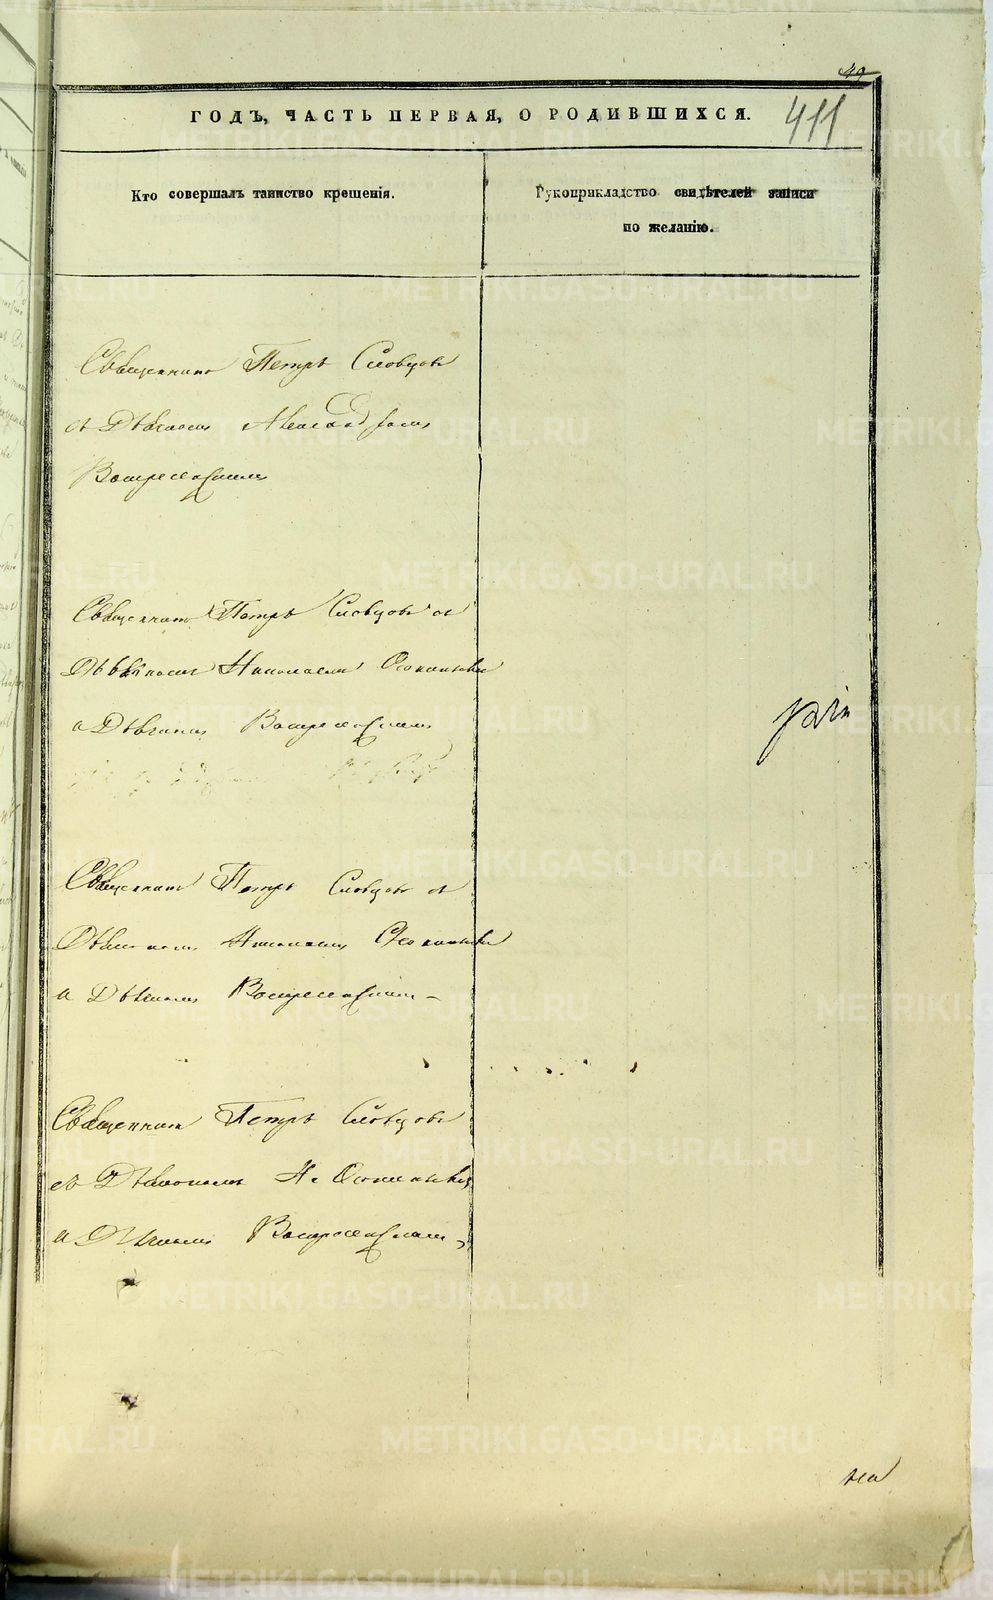 49
ГОДЪ, ЧАСТЬ ПЕРВАЯ, О РОДИВШИХСЯ.
411
Кто совершалъ таинство крещенія.
Рукоприкладство свидѣтелей записи
по желанію.
Священникъ Петръ Словцовъ
съ Дьячкомъ Александромъ
Воскресенскимъ
Священникъ Петръ Словцовъ съ
Николаемъ
и Дьячкомъ Воскресенскимъ
Священникъ Петръ Словцовъ съ
Николаемъ
и Дьячкомъ Воскресенскимъ
Священникъ Петръ Словцовъ
съ
и Дьячкомъ Воскресенскимъ
METRIKI.GASO-URAL.RU